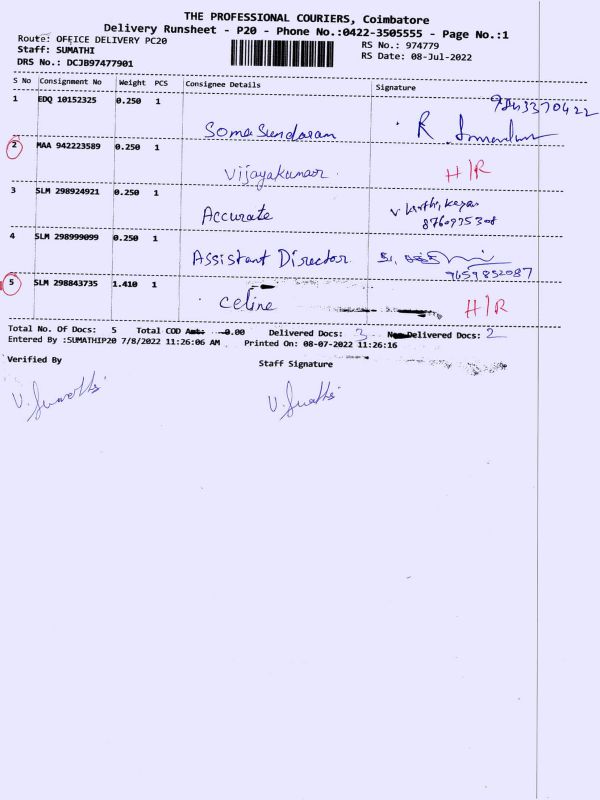 THE PROFESSIONAL COURIERS, Coimbatore
Delivery Runsheet - P20 - Phone No.:0422-3505555 - Page No.:1
Route: OFFICE DELIVERY PC20 RS No.: 974779
Staff: SUMATHI RS Date: 08-Jul-2022
DRS No.: DCJB97477901
S No Consignment No Weight PCS Consignee Details Signature
1 EDQ 10152325 0.250 1 9843370422
Somasundaram R.
2 MAA 942223589 0.250 1
Vijayakumaor H/R
3 SLM 298924921 0.250 1
Accurate 8760975308
4 SLM 298999099 0.250 1
Assistant Director 9659852087
5 SLM 298843735 1.410 1
Celine H/R
Total No. Of Docs: 5 Total COD Amt: 0.00 Delivered Docs: 3 Non Delivered Docs: 2
Entered By :SUMATHIP20 7/8/2022 11:26:06 AM Printed On: 08-07-2022 11:26:16
Verified By Staff Signature